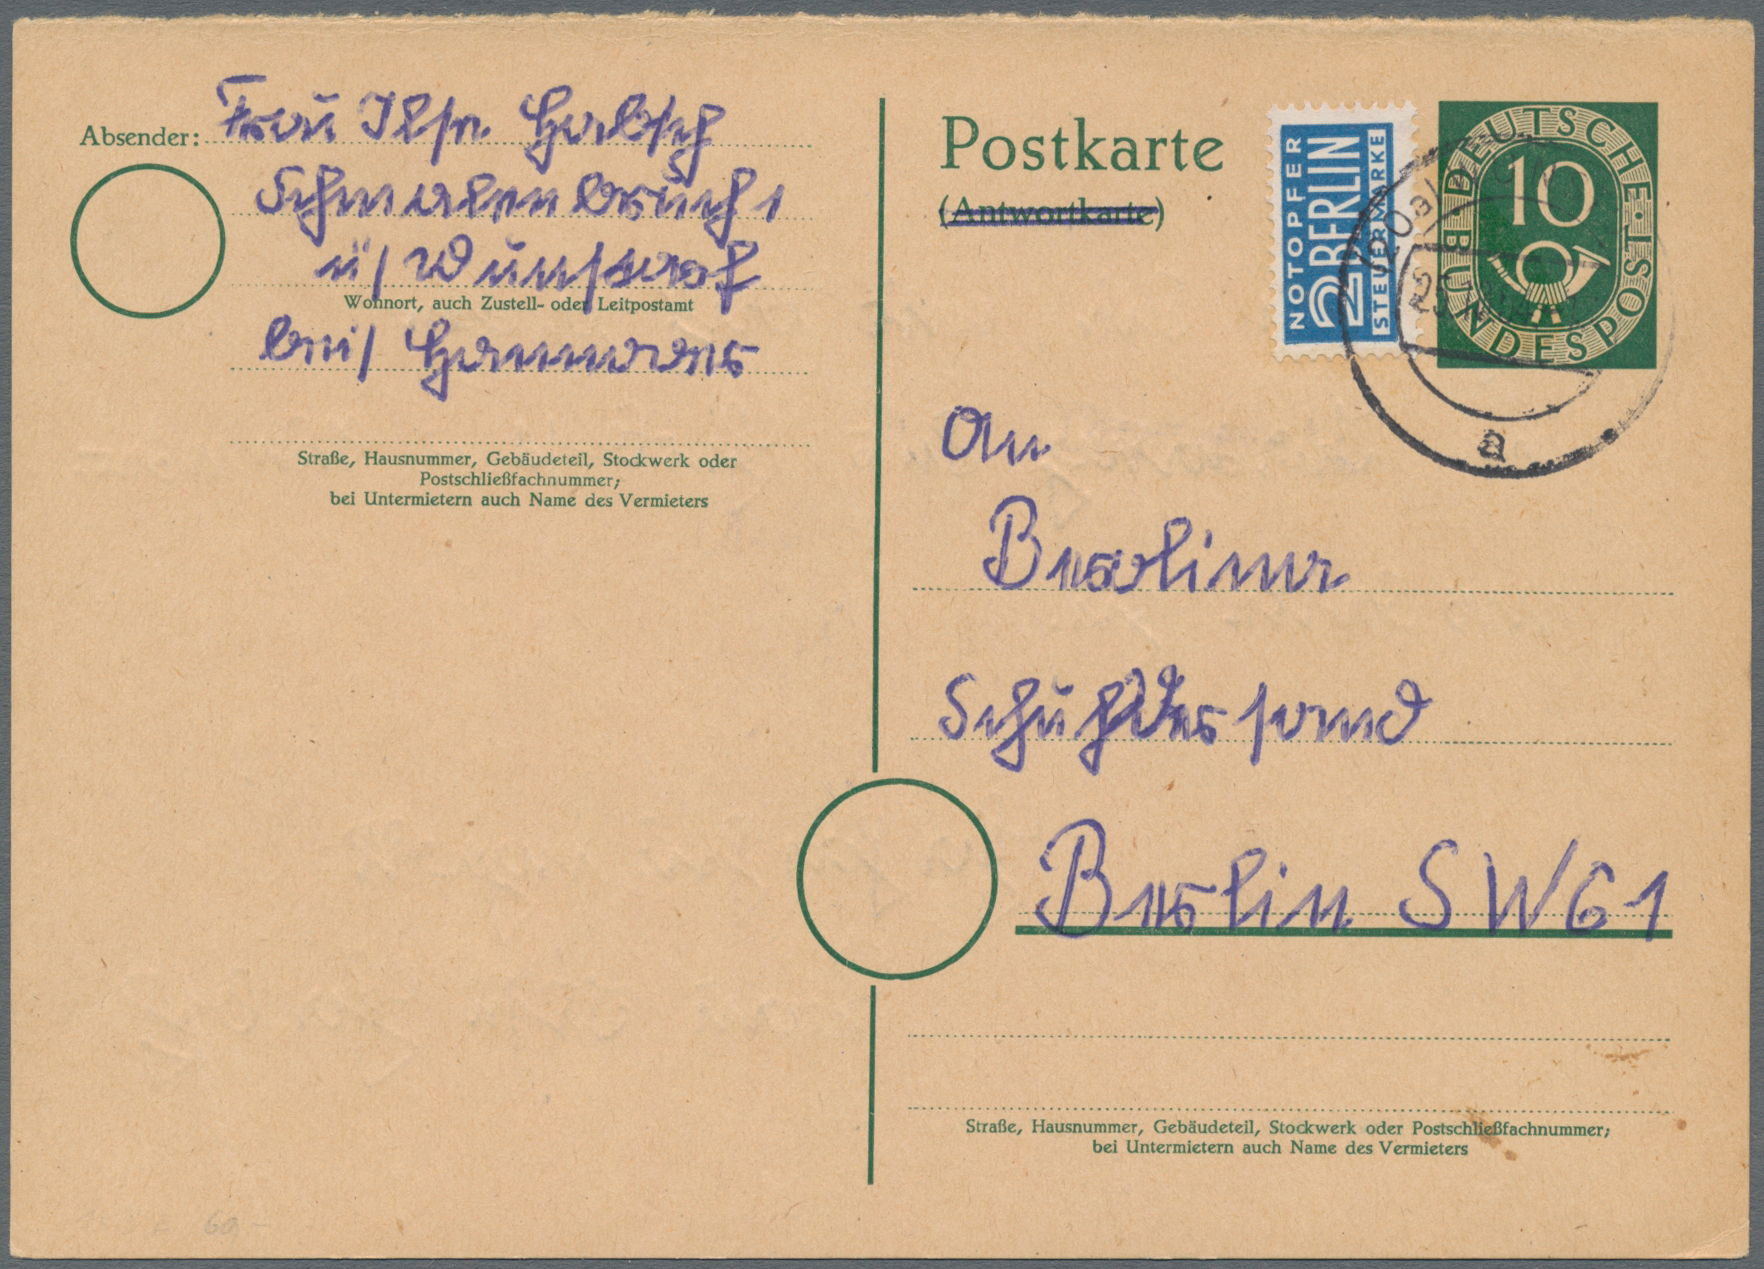 Absender: Frau Ilse
Schmalenbruch 1
ü/ Wunstorf
Wohnort, auch Zustell- oder Leitpostamt
bei/ Hannover
Straße, Hausnummer, Gebäudeteil, Stockwerk oder
Postschließfachnummer;
bei Untermietern auch Name des Vermieters
Postkarte
(Antwortkarte)
NOTOPFER
2 BERLIN
STEUERMARKE
DEUTSCHE BUNDESPOST
10
(20a)
a
An
Berliner
Berlin SW61
Straße, Hausnummer, Gebäudeteil, Stockwerk oder Postschließfachnummer;
bei Untermietern auch Name des Vermieters
60